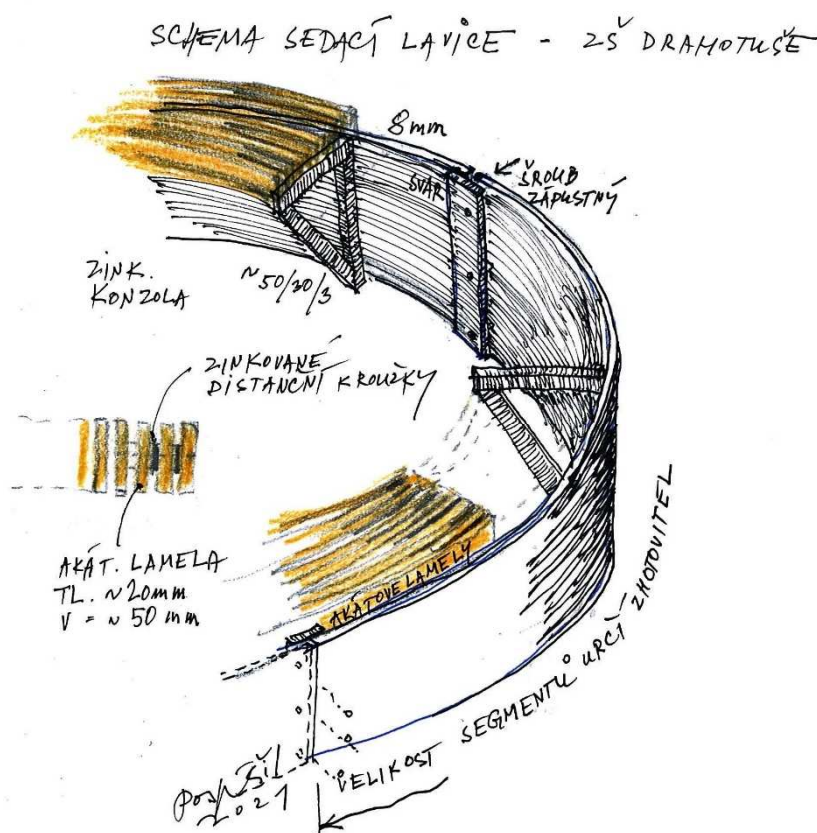 SCHEMA SEDACÍ LAVICE - ZŠ DRAHOTUŠE
8mm
SVÁR
ŠROUB
ZÁPUSTNÝ
ZINK.
KONZOLA
~50/30/3
ZINKOVANÉ
DISTANČNÍ KROUŽKY
AKÁT. LAMELA
TL. ~20mm
V = ~50 mm
AKÁTOVÉ LAMELY
VELIKOST SEGMENTŮ URČÍ ZHOTOVITEL
Pospíšil
2021